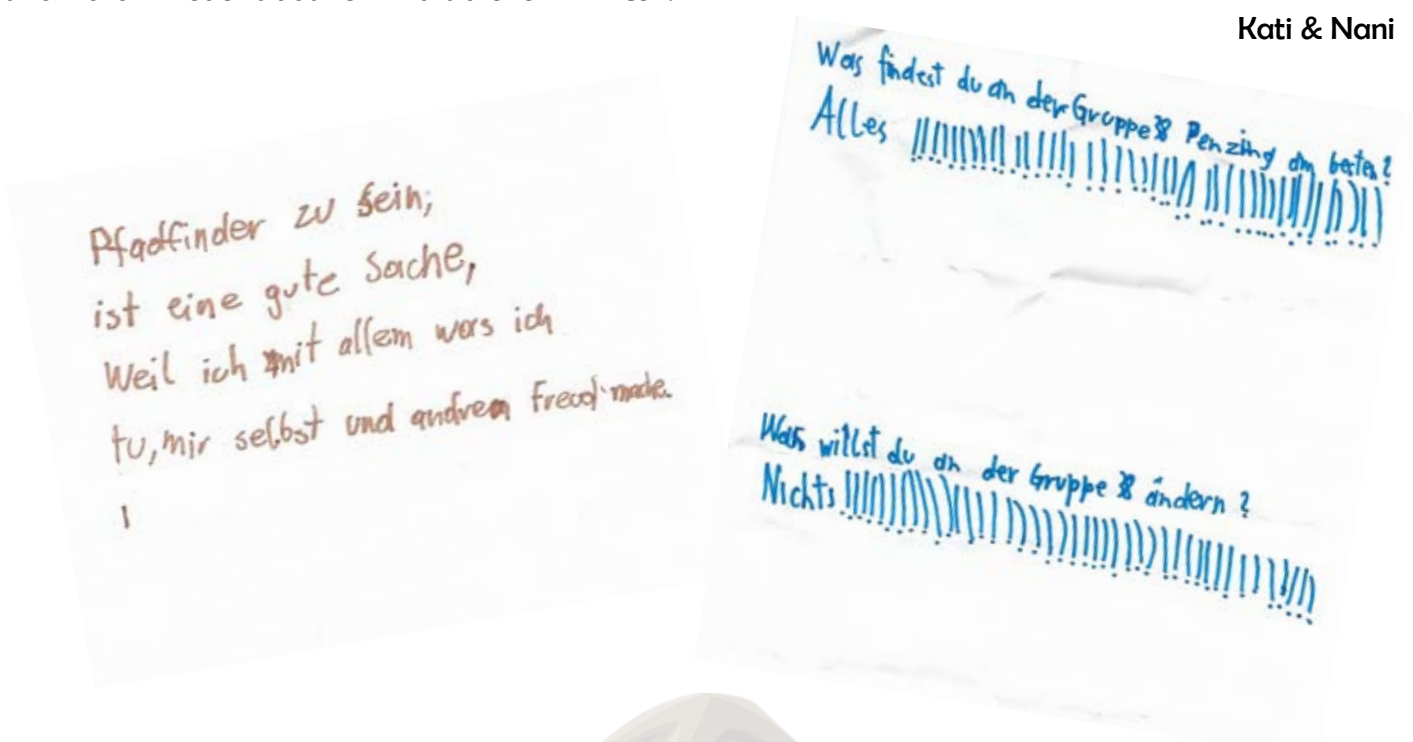 Kati & Nani
Pfadfinder zu sein,
ist eine gute Sache,
Weil ich mit allem was ich
tu, mir selbst und andren Freud mache.
Was findest du an der Gruppe 8 Penzing am besten?
Alles !!!!!!!!!!!!!!!!!!!!!!!!!!!!!!!!!!!!!!!!!!!!
Was willst du an der Gruppe 8 ändern?
Nichts !!!!!!!!!!!!!!!!!!!!!!!!!!!!!!!!!!!!!!!!!!!!